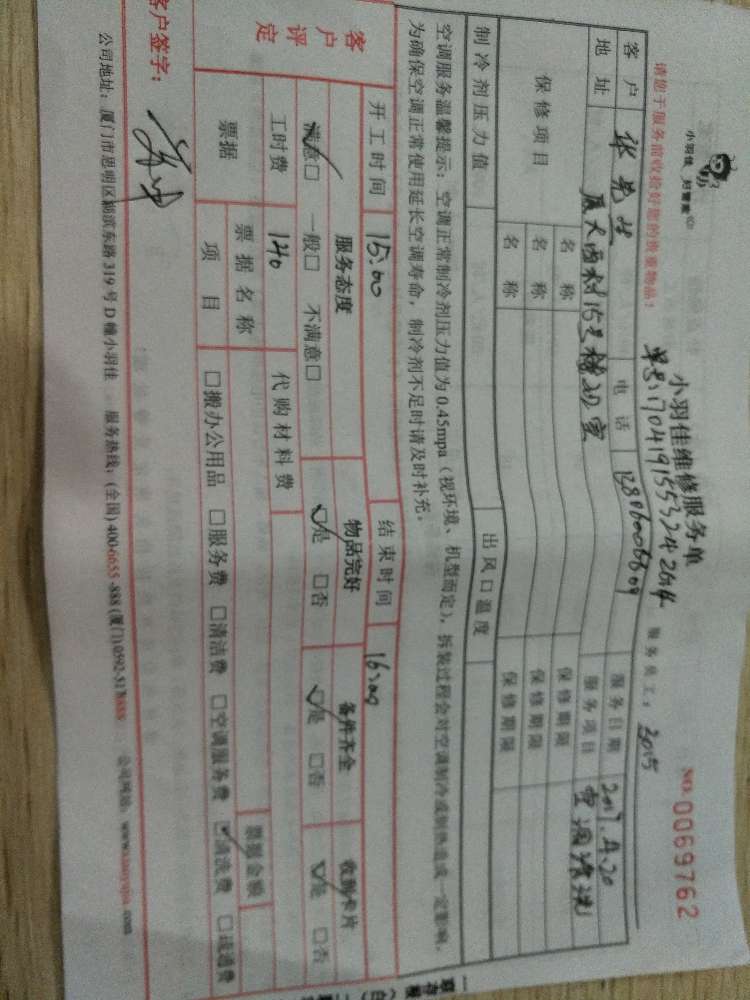 小羽佳维修服务单
NO. 0069762
单号:170419155324264
服务员工: 3015
请您于服务前收拾好您的贵重物品!
客户 电话 服务日期 2017.4.20
地址 厦大西村15号楼 室 服务项目 空调清洗
保修项目 名称 保修期限
名称 保修期限
名称 保修期限
制冷剂压力值 出风口温度
空调服务温馨提示:空调正常制冷剂压力值为0.45mpa(视环境、机型而定),拆装过程会对空调制冷或制热造成一定影响,
为确保空调正常使用延长空调寿命,制冷剂不足时请及时补充。
开工时间 15:00 结束时间 16:00
客户评定 服务态度 物品完好 备件齐全 收到卡片
满意□ 一般□ 不满意□ □是 □否 □是 □否 □是 □否
工时费 140 代购材料费
票据 票据名称 票据金额
项目 □搬办公用品 □服务费 □清洁费 □空调服务费 □清洗费 □疏通费
客户签字:
公司地址:厦门市思明区湖滨东路319号D幢小羽佳 服务热线:(全国)400-6655-888